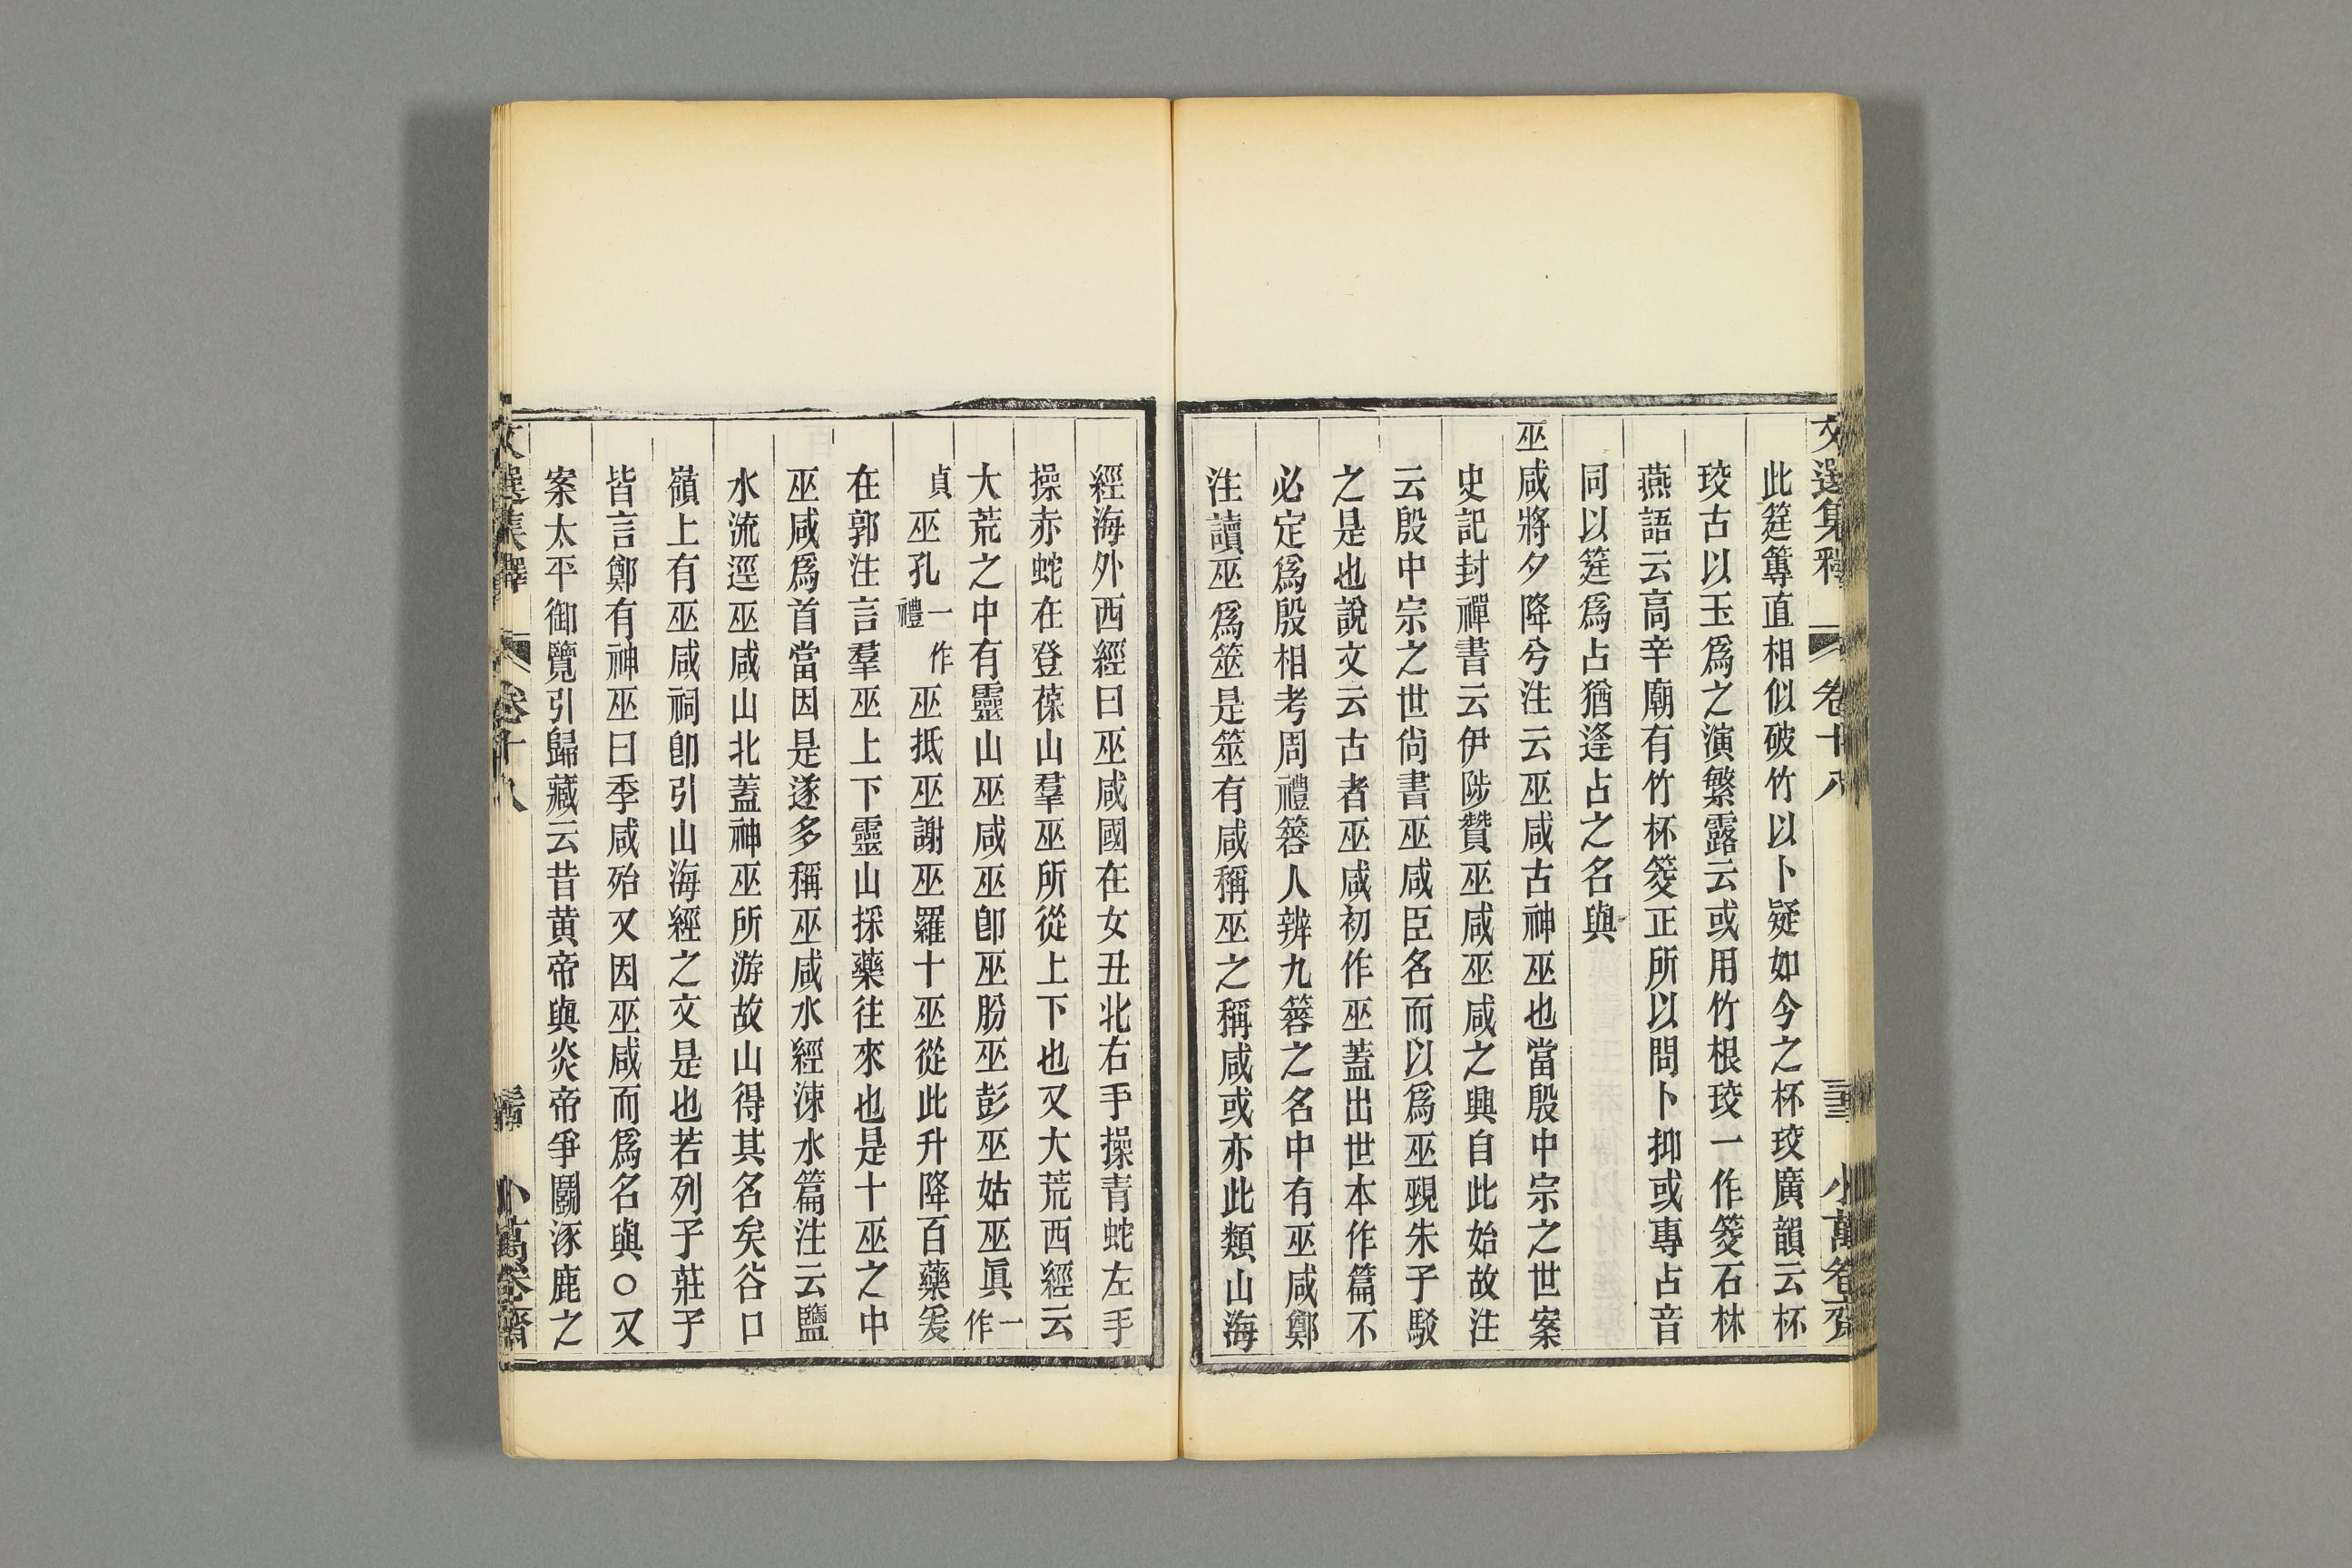 文選集釋 卷十八 小萬卷齋
此筳篿直相似破竹以卜疑如今之杯珓廣韻云杯
珓古以玉爲之演繁露云或用竹根珓一作筊石林
燕語云高辛廟有竹杯筊正所以問卜抑或專占音
同以筳爲占猶逢占之名與
巫咸將夕降兮注云巫咸古神巫也當殷中宗之世案
史記封禪書云伊陟贊巫咸巫咸之興自此始故注
云殷中宗之世尙書巫咸臣名而以爲巫覡朱子駁
之是也說文云古者巫咸初作巫蓋出世本作篇不
必定爲殷相考周禮簭人辨九簭之名中有巫咸鄭
注讀巫爲筮是筮有咸稱巫之稱咸或亦此類山海
經海外西經曰巫咸國在女丑北右手操青蛇左手
操赤蛇在登葆山羣巫所從上下也又大荒西經云
大荒之中有靈山巫咸巫卽巫肦巫彭巫姑巫眞一作
貞巫孔一作禮巫抵巫謝巫羅十巫從此升降百藥爰
在郭注言羣巫上下靈山採藥往來也是十巫之中
巫咸爲首當因是遂多稱巫咸水經涑水篇注云鹽
水流逕巫咸山北蓋神巫所游故山得其名矣谷口
嶺上有巫咸祠卽引山海經之文是也若列子莊子
皆言鄭有神巫曰季咸殆又因巫咸而爲名與○又
案太平御覽引歸藏云昔黃帝與炎帝爭鬬涿鹿之
文選集釋 卷十八 小萬卷齋